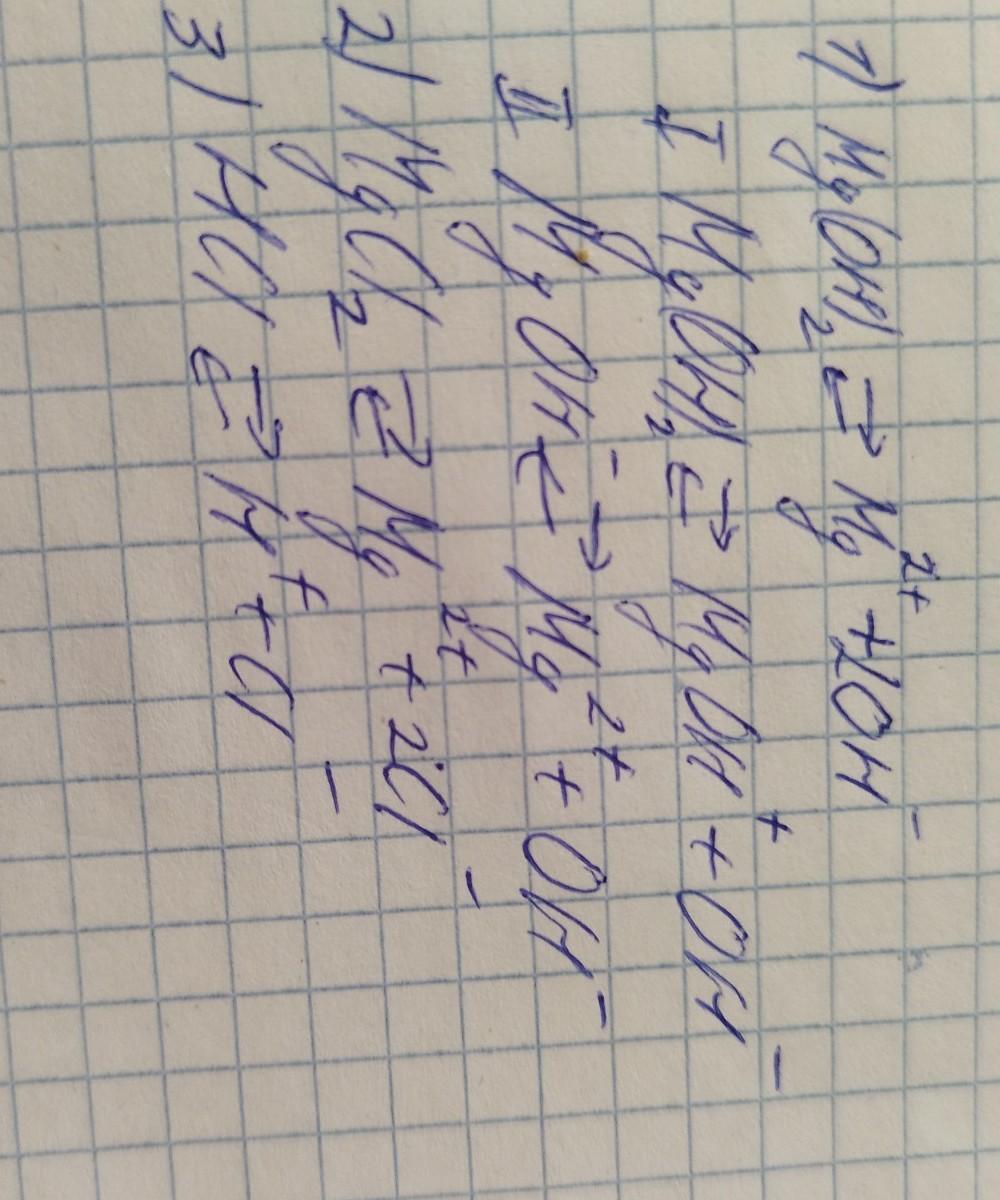 1) Mg(OH)₂ ⇄ Mg²⁺ + 2OH⁻
I Mg(OH)₂ ⇄ MgOH⁺ + OH⁻
II MgOH⁻ ⇄ Mg²⁺ + OH⁻
2) MgCl₂ ⇄ Mg²⁺ + 2Cl⁻
3) HCl ⇄ H⁺ + Cl⁻